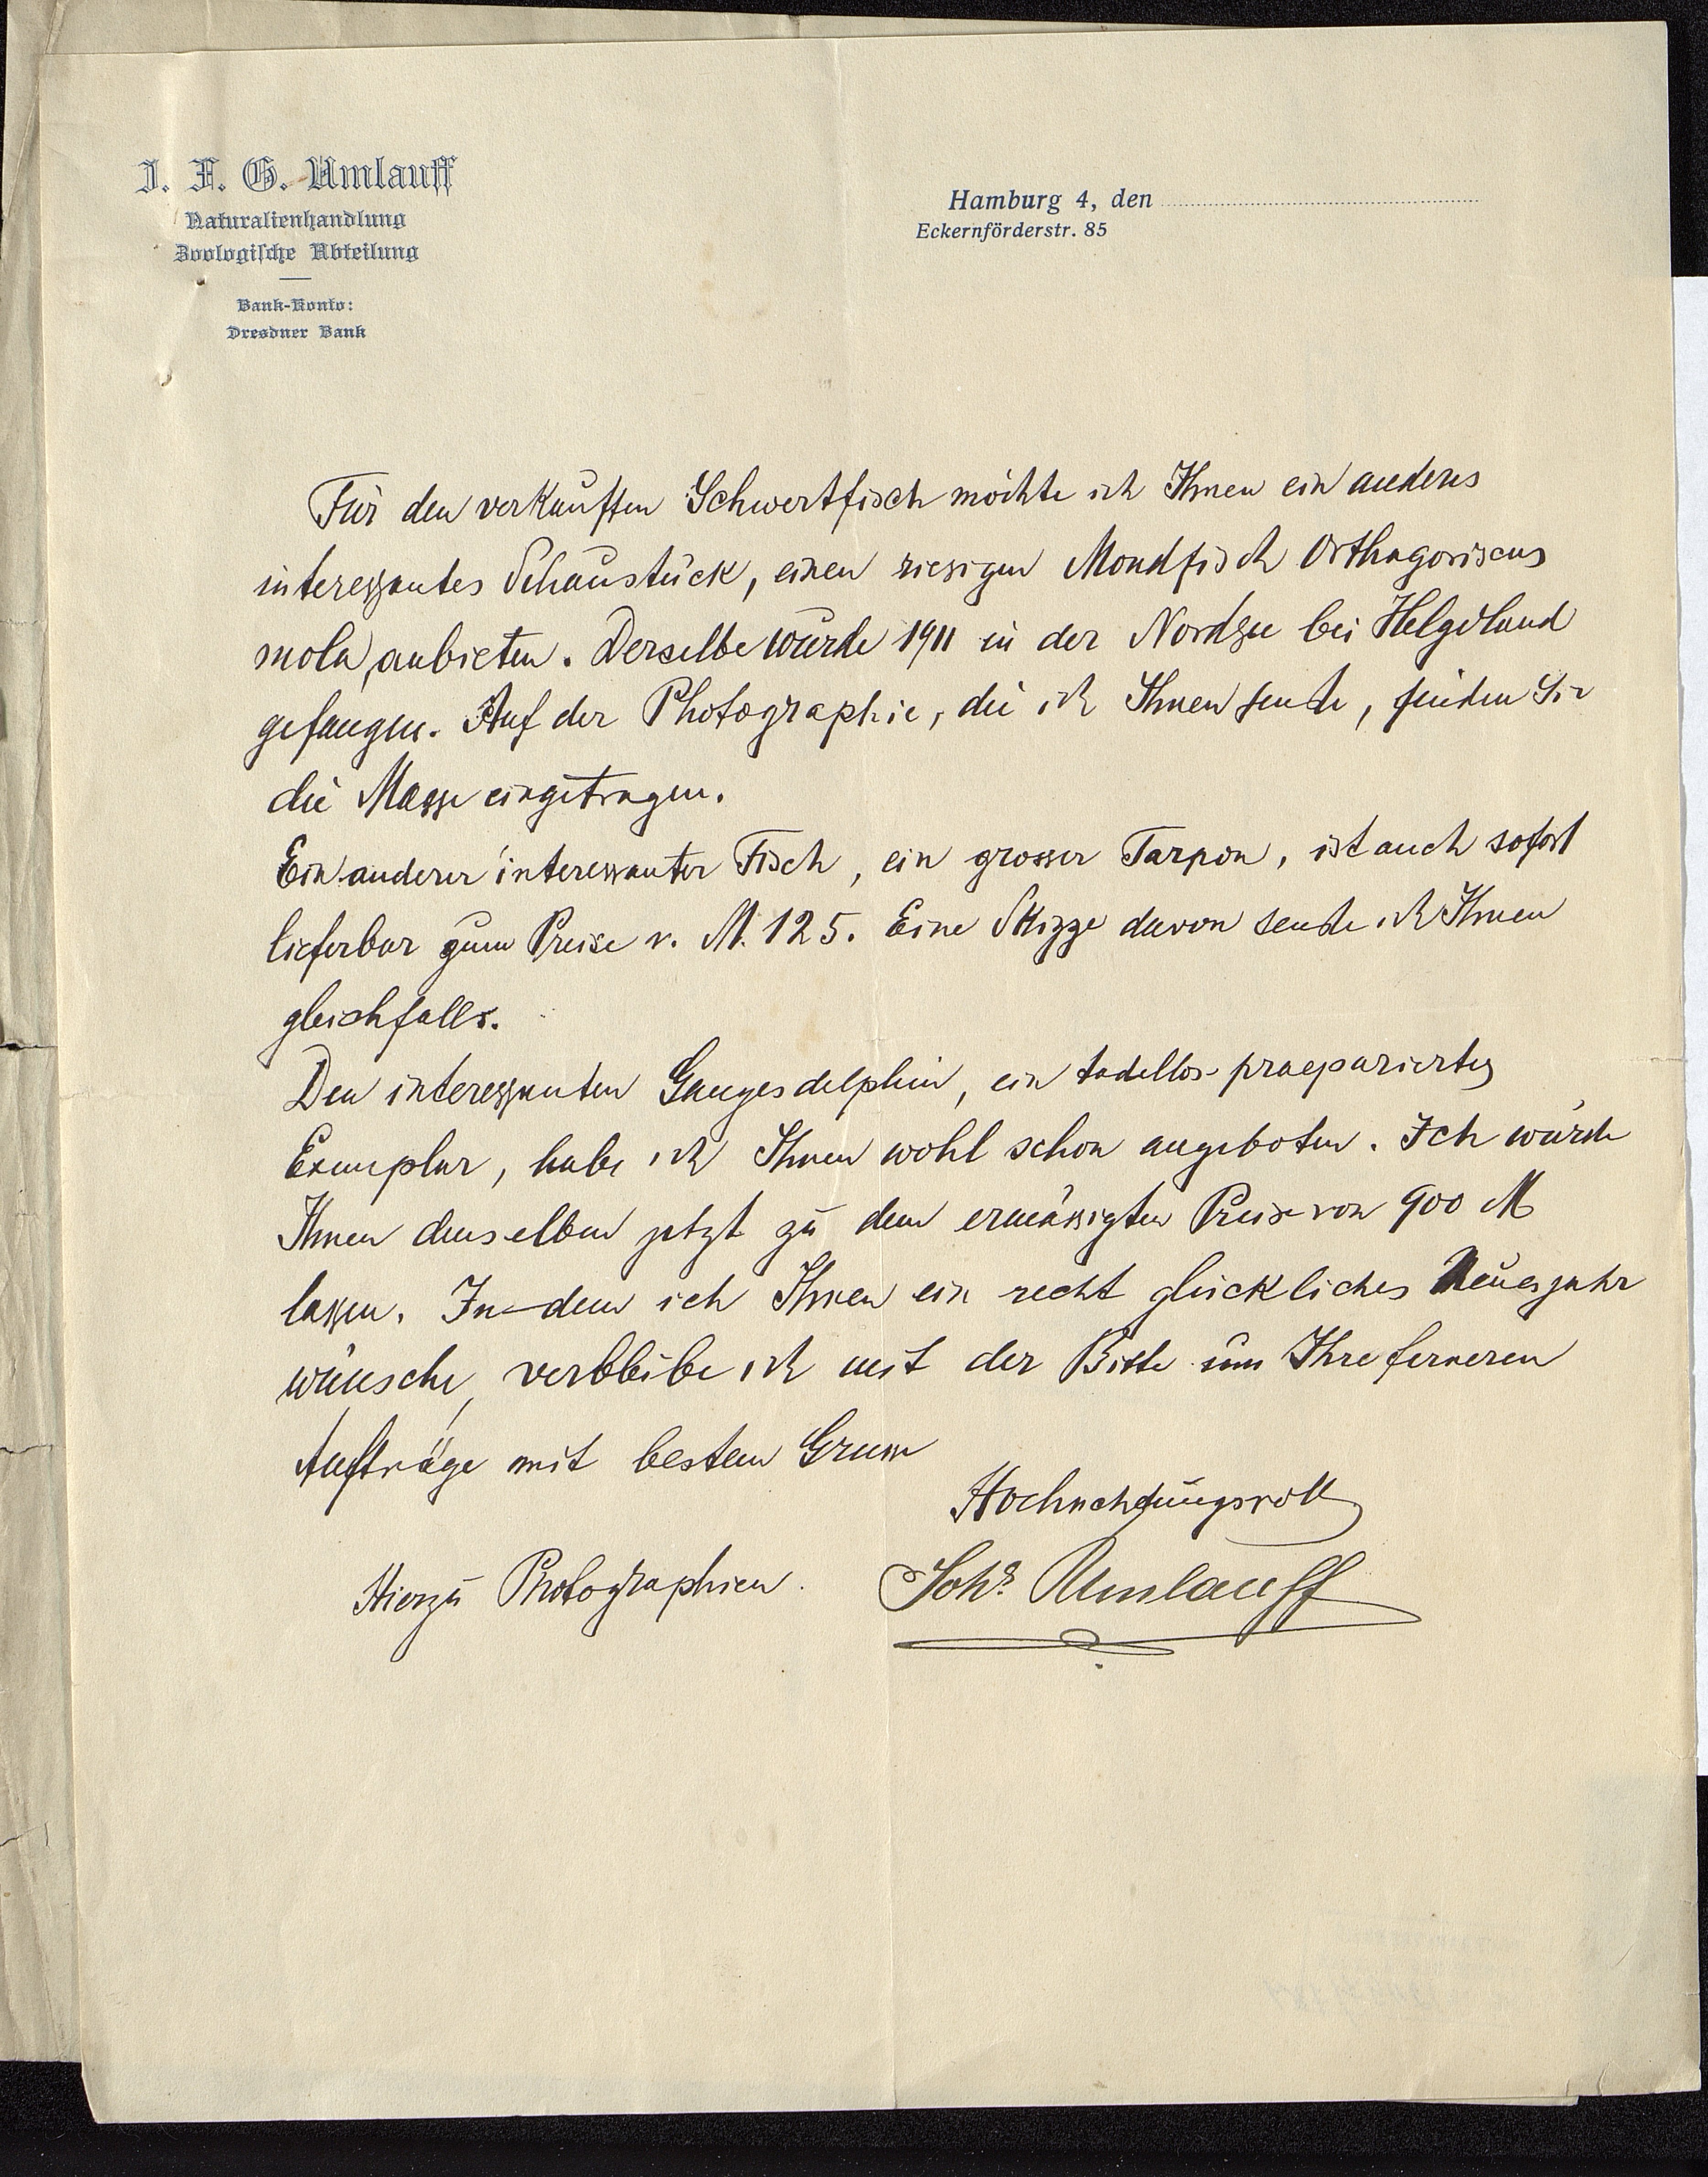 J. F. G. Umlauff
Naturalienhandlung
Zoologische Abteilung
Bank-Konto:
Dresdner Bank
Hamburg 4, den
Eckernförderstr. 85
Für den verkauften Schwertfisch möchte ich Ihnen ein anderes
interessantes Schaustück, einen riesigen Mondfisch Orthagoriscus
mola, anbieten. Derselbe wurde 1911 in der Nordsee bei Helgoland
gefangen. Auf der Photographie, die ich Ihnen sende, finden Sie
die Masse eingetragen.
Ein anderer interessanter Fisch, ein grosser Tarpon, ist auch sofort
lieferbar zum Preise v. M. 125. Eine Skizze davon sende ich Ihnen
gleichfalls.
Den interessanten Gangesdelphin, ein tadellos praepariertes
Exemplar, habe ich Ihnen wohl schon angeboten. Ich würde
Ihnen denselben jetzt zu dem ermässigten Preise von 900 M
lassen. In-dem ich Ihnen ein recht glückliches Neuesjahr
wünsche, verbleibe ich mit der Bitte um Ihre ferneren
Aufträge mit bestem Gruss
Hochachtungsvoll
Hierzu Photographien. Johs. Umlauff